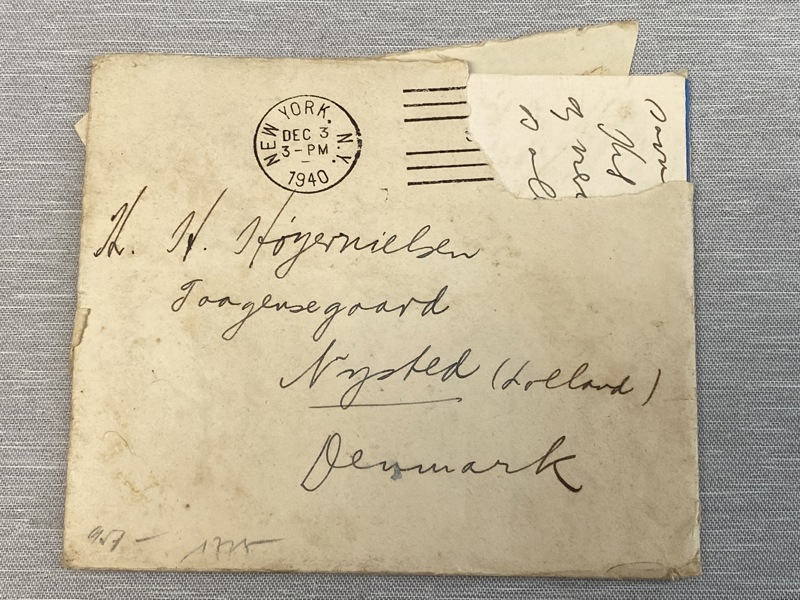 NEW YORK, N.Y.
DEC 3
3-PM
1940
H. H. Høyernielsen
Taagensegaard
Nysted (Lolland)
Denmark
1775